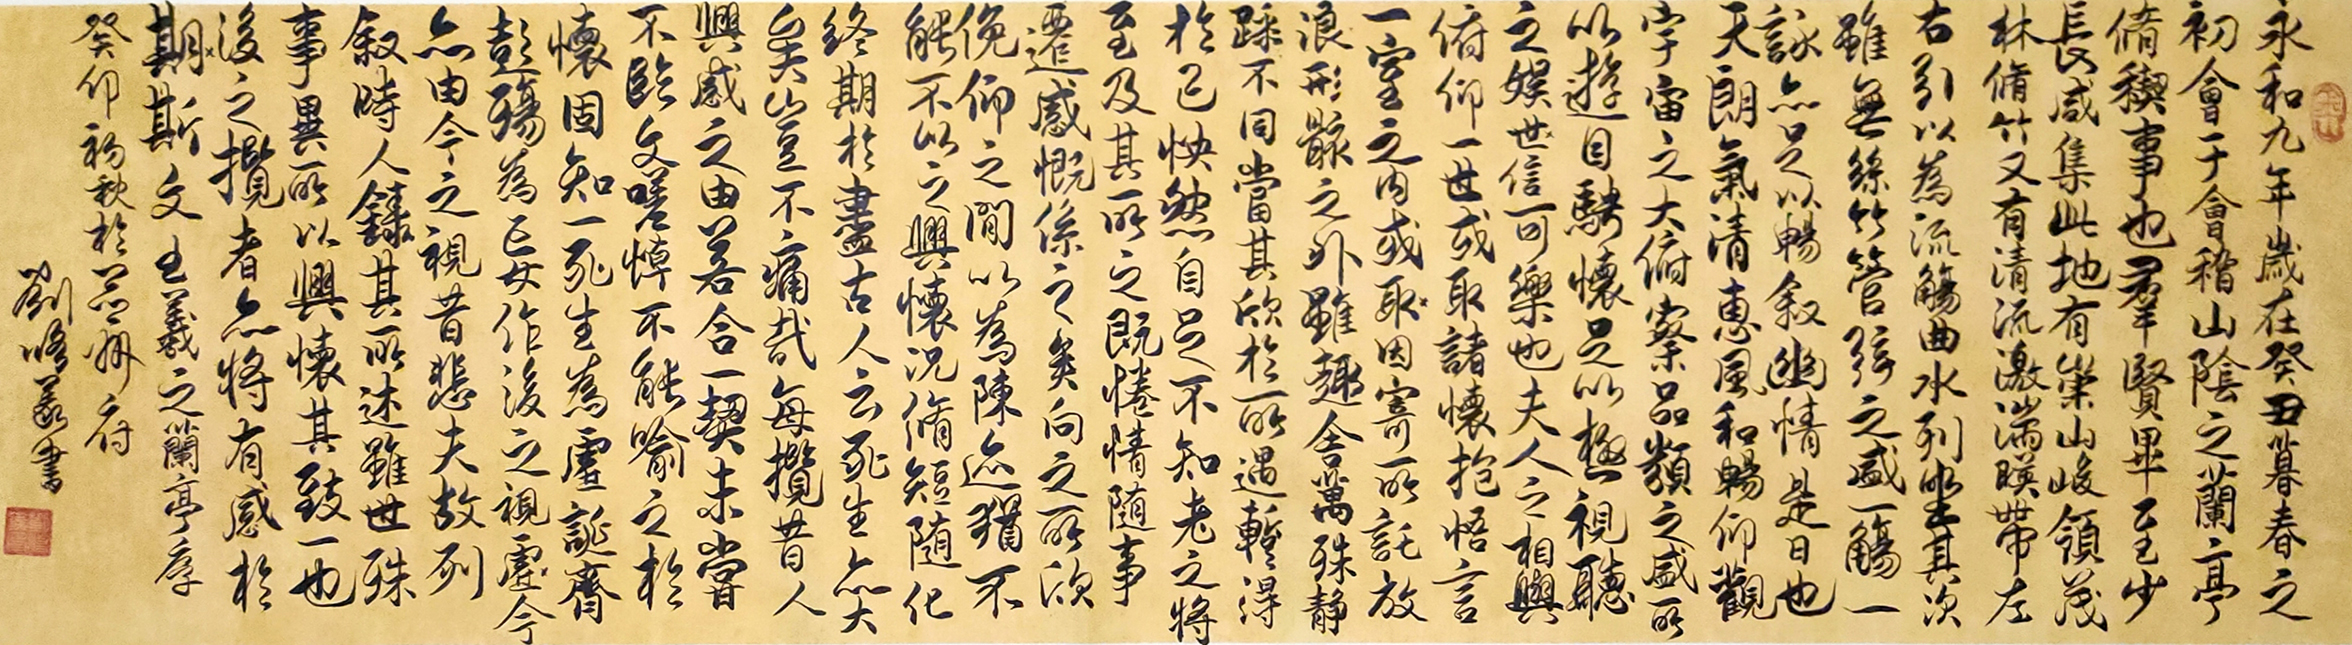 永和九年歲在癸丑暮春之
初會于會稽山陰之蘭亭
脩稧事也羣賢畢至少
長咸集此地有崇山峻領茂
林脩竹又有清流激湍暎帶左
右引以為流觴曲水列坐其次
雖無絲竹管弦之盛一觴一
詠亦足以暢叙幽情是日也
天朗氣清惠風和暢仰觀
宇宙之大俯察品類之盛所
以遊目騁懷足以極視聽
之娛世信可樂也夫人之相與
俯仰一世或取諸懷抱悟言
一室之內或取因寄所託放
浪形骸之外雖趣舍萬殊静
躁不同當其欣於所遇暫得
於己怏然自足不知老之將
至及其所之既惓情隨事
遷感慨係之矣向之所欣
俛仰之閒以為陳迹猶不
能不以之興懷況脩短隨化
終期於盡古人云死生亦大
矣豈不痛哉每攬昔人
興感之由若合一契未嘗
不臨文嗟悼不能喻之於
懷固知一死生為虛誕齊
彭殤為妄作後之視今
亦由今之視昔悲夫故列
叙時人錄其所述雖世殊
事異所以興懷其致一也
後之攬者亦將有感於
期斯文 王羲之蘭亭序
癸卯初秋於府
劉義書